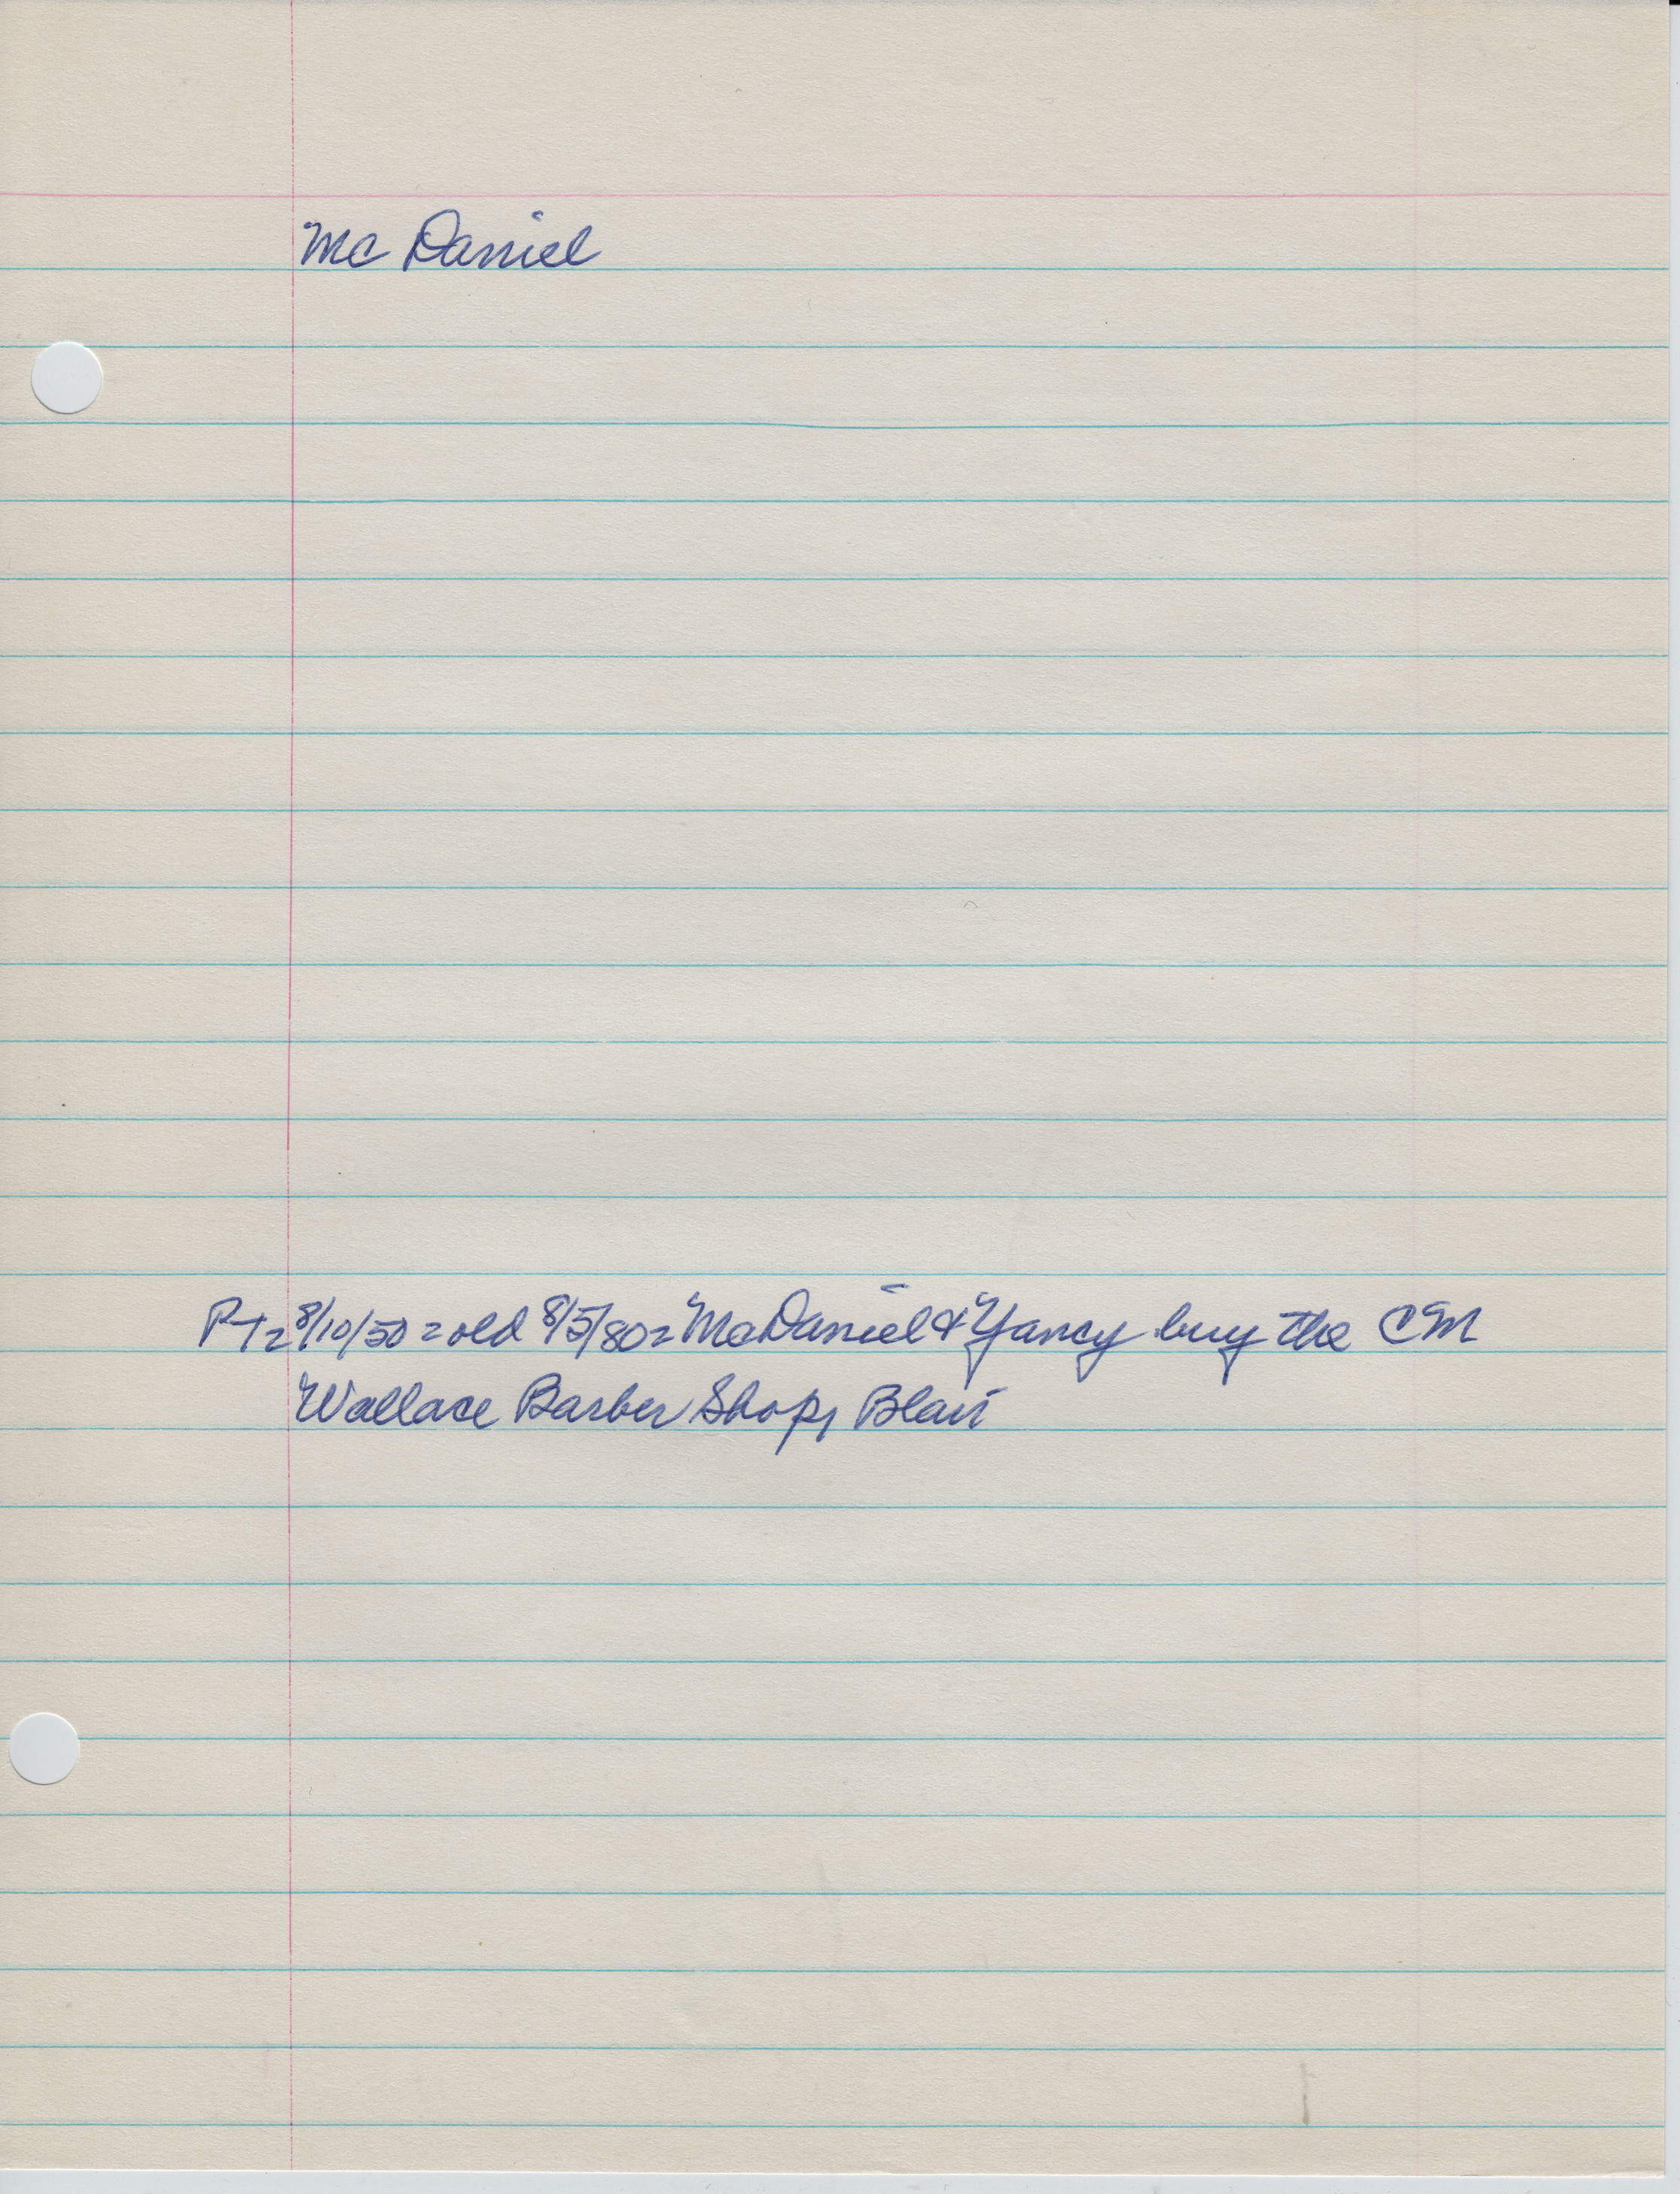 Mc Daniel
PT=8/10/50=old 8/5/80=McDaniel & Yancy buy the CM
Wallace Barber Shop, Blair